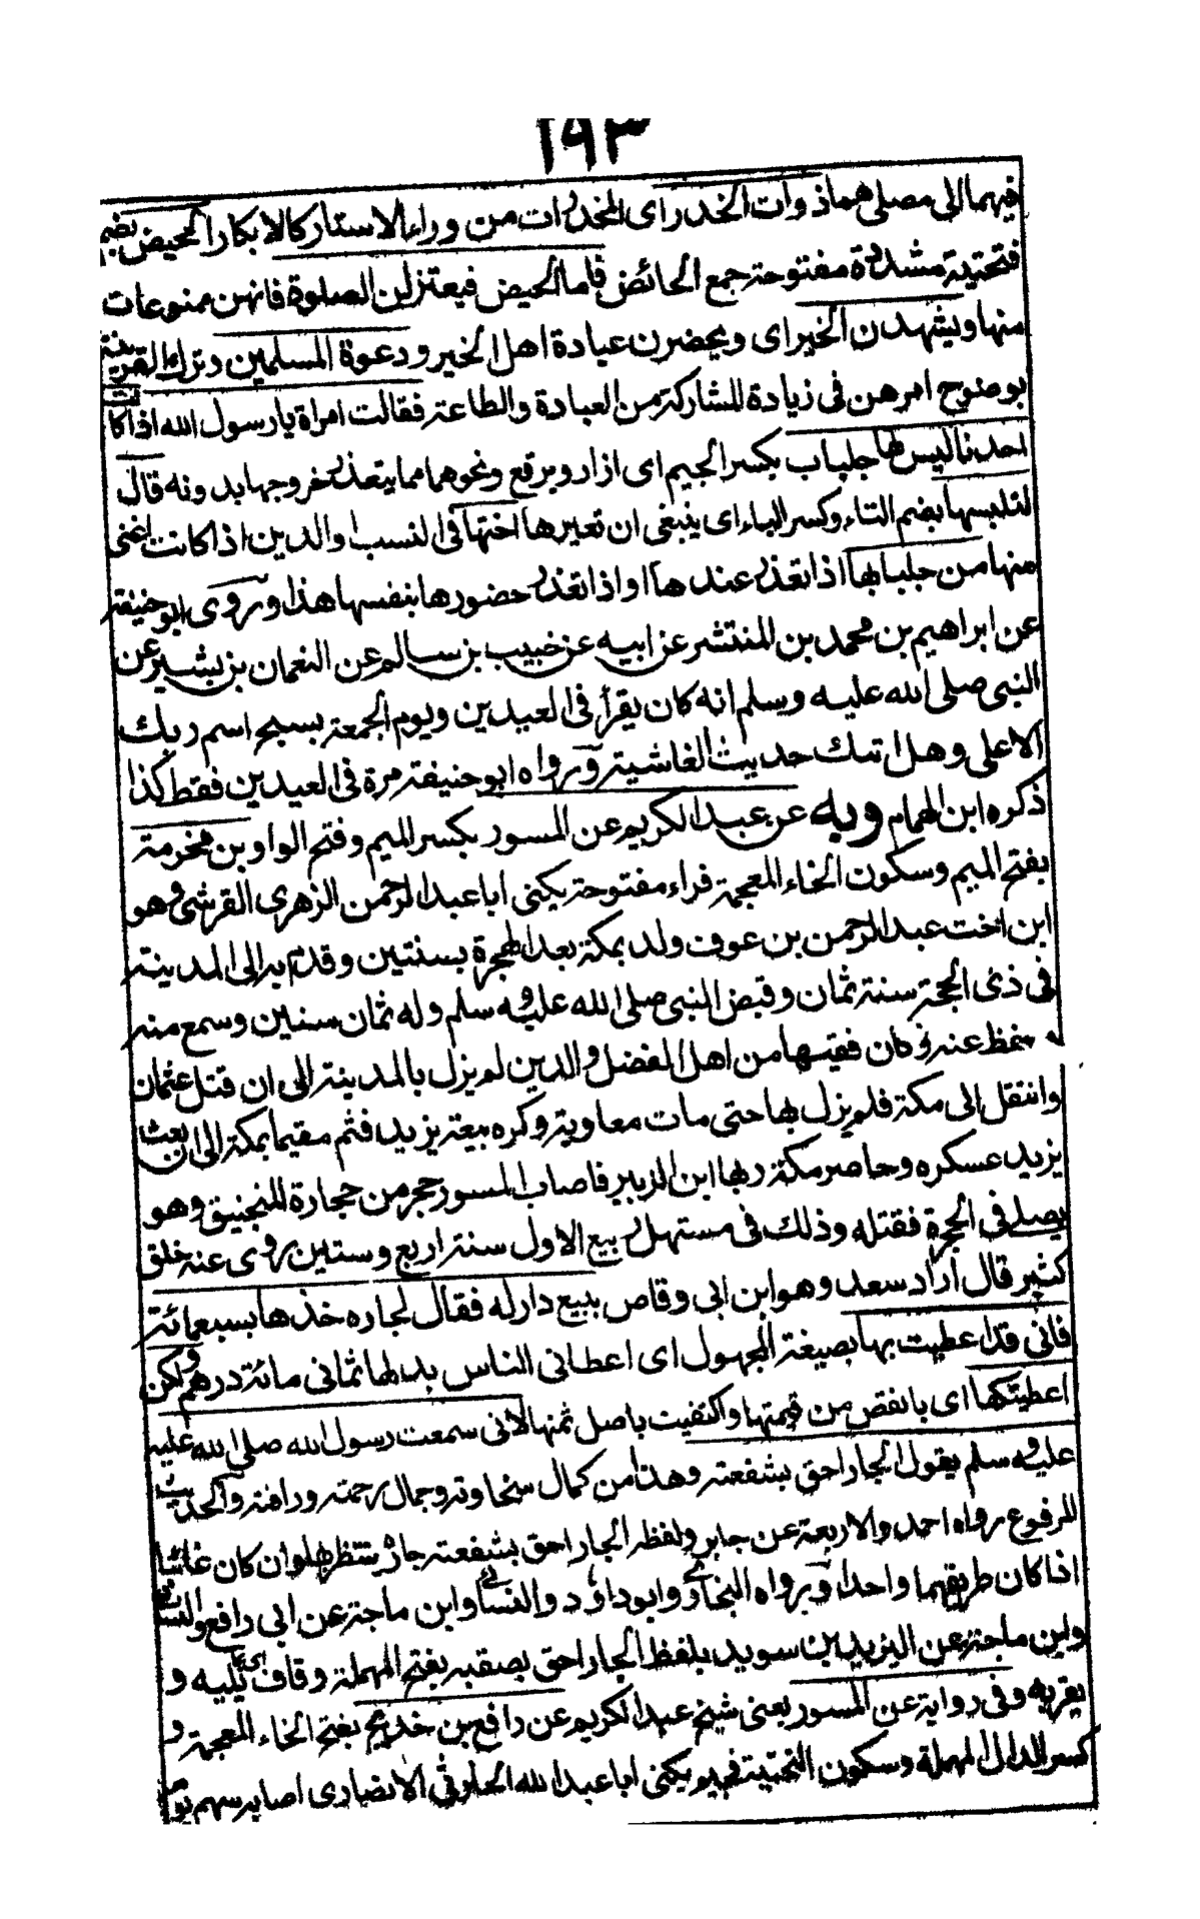 ١٩٣
فيهما الى مصلى هما ذوات الخدر اى المخدرات من وراء الاستار كالابكار الحيض بضم
فتحتية مشددة مفتوحة جمع الحائض فاما الحيض فيعتزلن الصلوة فانهن ممنوعات
منها ويشهدن الخير اى ويحضرن عبادة اهل الخير ودعوة المسلمين وترك القرينة
بوضوح امرهن فى زيادة المشاركة من العبادة والطاعة فقالت امراة يا رسول الله اذا كانت
احدنا ليس لها جلباب بكسر الجيم اى ازار وبرقع ونحوهما مما يتعذر خروجها بدونه قال
لتلبسها بضم التاء وكسر الباء اى ينبغى ان تعيرها اختها فى النسب او الدين اذا كانت اغنى
منها من جلبابها اذا تعذر عندها او اذا تعذر حضورها بنفسها هذا وروى ابو حنيفة
عن ابراهيم بن محمد بن المنتشر عن ابيه عن خبيب بن سالم عن النعمان بن بشير عن
النبى صلى الله عليه وسلم انه كان يقرأ فى العيدين ويوم الجمعة بسبح اسم ربك
الاعلى وهل اتىك حديث الغاشية ورواه ابو حنيفة مرة فى العيدين فقط كذا
ذكره ابن الهمام وبه عن عبد الكريم عن المسور بكسر الميم وفتح الواو بن مخرمة
بفتح الميم وسكون الخاء المعجمة فراء مفتوحة يكنى ابا عبد الرحمن الزهرى القرشى وهو
ابن اخت عبد الرحمن بن عوف ولد بمكة بعد الهجرة بسنتين وقدم به الى المدينة
فى ذى الحجة سنة ثمان وقبض النبى صلى الله عليه وسلم وله ثمان سنين وسمع منه
حفظ عنه وكان فقيها من اهل الفضل والدين لم يزل بالمدينة الى ان قتل عثمان
وانتقل الى مكة فلم يزل بها حتى مات معاوية وكره بيعة يزيد فثم مقيما بمكة الى ان بعث
يزيد عسكره وحاصر مكة وبها ابن الزبير فاصاب المسور حجر من حجارة المنجنيق وهو
يصلى فى الحجرة فقتله وذلك فى مستهل ربيع الاول سنة اربع وستين روى عنه خلق
كثير قال اراد سعد وهو ابن ابى وقاص ببيع دار له فقال لجاره خذها بسبعمائة
فانى قد اعطيت بها بصيغة المجهول اى اعطانى الناس بدلها ثمانى مائة درهم ولكن
اعطيتكها اى بانقص من قيمتها واكتفيت باصل ثمنها لانى سمعت رسول الله صلى الله عليه
عليه وسلم يقول الجار احق بشفعته وهذا من كمال سخاوته وجمال رحمته ورافته والحديث
المرفوع رواه احمد والاربعة عن جابر ولفظه الجار احق بشفعة جاره ينتظر بها وان كان غائبا
اذا كان طريقهما واحدا ورواه البخارى وابو داؤد والنسائى وابن ماجة عن ابى رافع والنسائى
وابن ماجة عن اليزيد بن سويد بلفظ الجار احق بصقبه بفتح المهملة وقاف اى يليه و
يقربه وفى رواية عن المسور يعنى شيخ عبد الكريم عن رافع بن خديج بفتح الخاء المعجمة و
كسر الدال المهملة وسكون التحتية فجيم يكنى ابا عبد الله الحارثى الانصارى اصابه سهم يوم